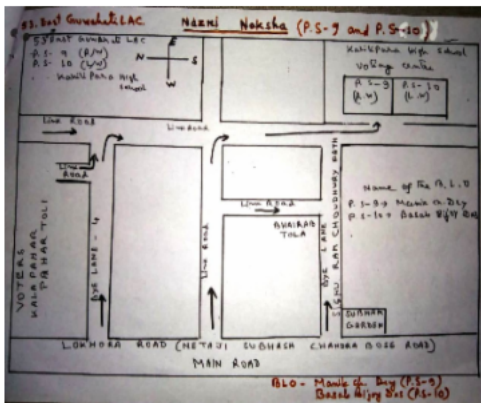 53. East Guwahati LAC
Nazri Noksha (P.S-9 and P.S-10)
53 East Guwahati LAC
P.S - 9 (R/W)
P.S - 10 (L/W)
Kahilipara High
School
E
N
S
W
Kahilipara High School
Voting Centre
P.S-9
(R.W)
P.S-10
(L.W)
Link Road
Link Road
Link
Road
Link Road
Link Road
VOTERS
KALAPAHAR
PAHARTOLI
BYE LANE - 4
BHAIRAB
TOLA
BYE LANE
RAM CHOUDHURY PATH
Name of the B.L.O
P.S-9→
P.S-10→
SUBHAM
GARDEN
LOKHORA ROAD (NETAJI SUBHASH CHANDRA BOSE ROAD)
MAIN ROAD
BLO - Manik ch Dey (P.S-9)
Basab Bijoy Das (P.S-10)